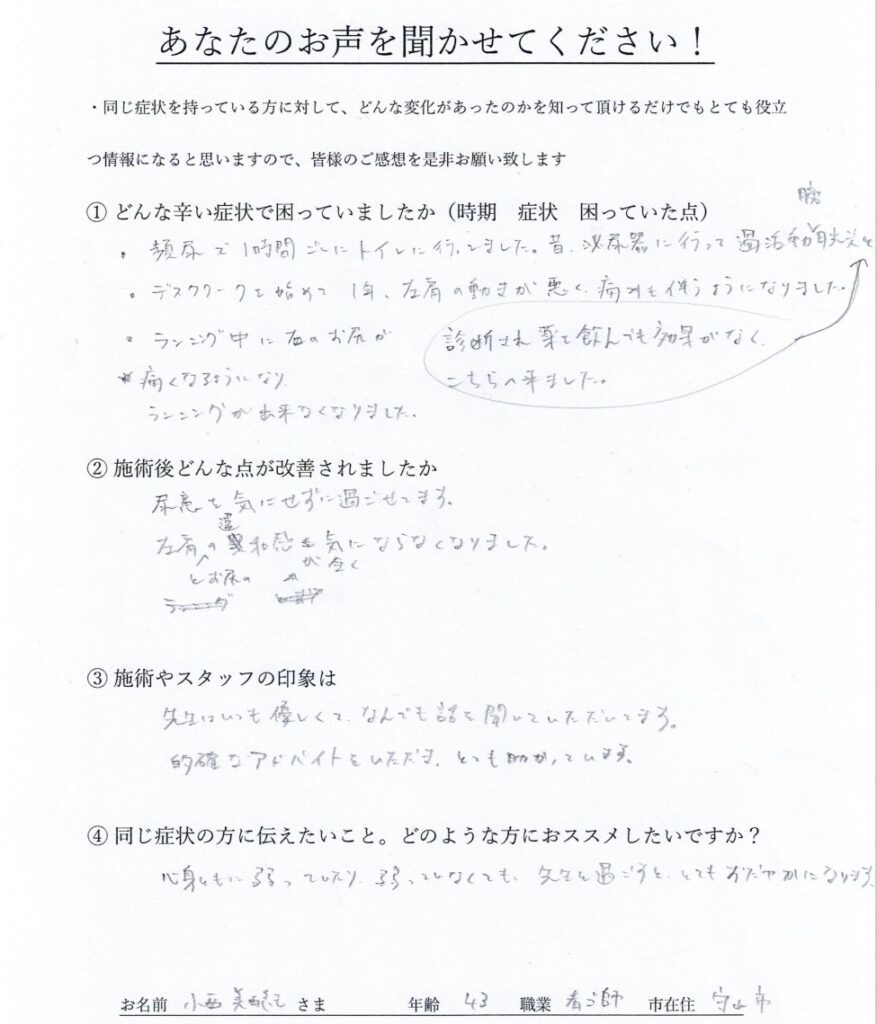 あなたのお声を聞かせてください！
・同じ症状を持っている方に対して、どんな変化があったのかを知って頂けるだけでもとても役立
つ情報になると思いますので、皆様のご感想を是非お願い致します
① どんな辛い症状で困っていましたか（時期　症状　困っていた点）
膀
・頻尿で1時間ごとにトイレに行ってました。昔、泌尿器に行って過活動胱炎と
・デスクワークを始めて1年、左肩の動きが悪く、痛みも伴うようになりました。
・ランニング中に右のお尻が
診断され薬を飲んでも効果がなく、
痛くなるようになり、
こちらへ来ました。
ランニングが出来なくなりました。
② 施術後どんな点が改善されましたか
尿意を気にせずに過ごせてます。
違
左肩の和感を気にならなくなりました。
とお尻の が 全く
ランニング
③ 施術やスタッフの印象は
先生はいつも優しくて、なんでも話を聞いていただいてます。
的確なアドバイトをいただき、とても助かっています。
④ 同じ症状の方に伝えたいこと。どのような方におススメしたいですか？
心身ともに弱ってしたり、弱っていなくても、先生と過ごすと、とてもおだやかになります。
お名前 小西 美 さま　年齢 43　職業 看護師　市在住 守山市